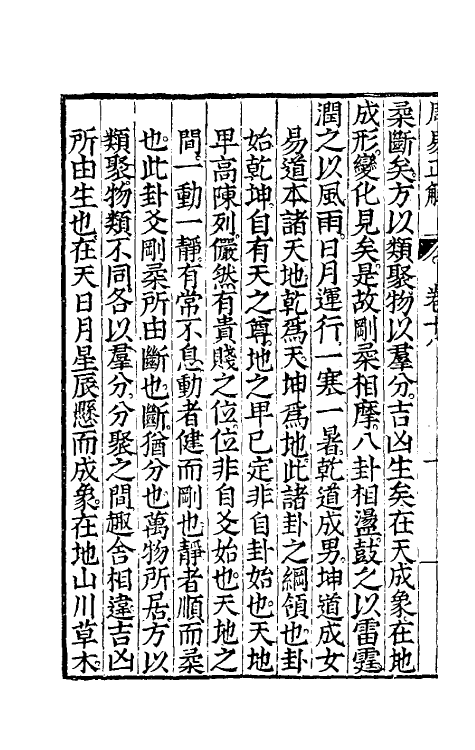 柔斷矣方以類聚物以羣分吉凶生矣在天成象在地
成形變化見矣是故剛柔相摩八卦相盪鼓之以雷霆
潤之以風雨日月運行一寒一暑乾道成男坤道成女
易道本諸天地乾爲天坤爲地此諸卦之綱領也卦
始乾坤自有天之尊地之卑已定非自卦始也天地
卑高陳列儼然有貴賤之位位非自爻始也天地之
間一動一靜有常不息動者健而剛也靜者順而柔
也此卦爻剛柔所由斷也斷猶分也萬物所居方以
類聚物類不同各以羣分分聚之間趣舍相違吉凶
所由生也在天日月星辰懸而成象在地山川草木